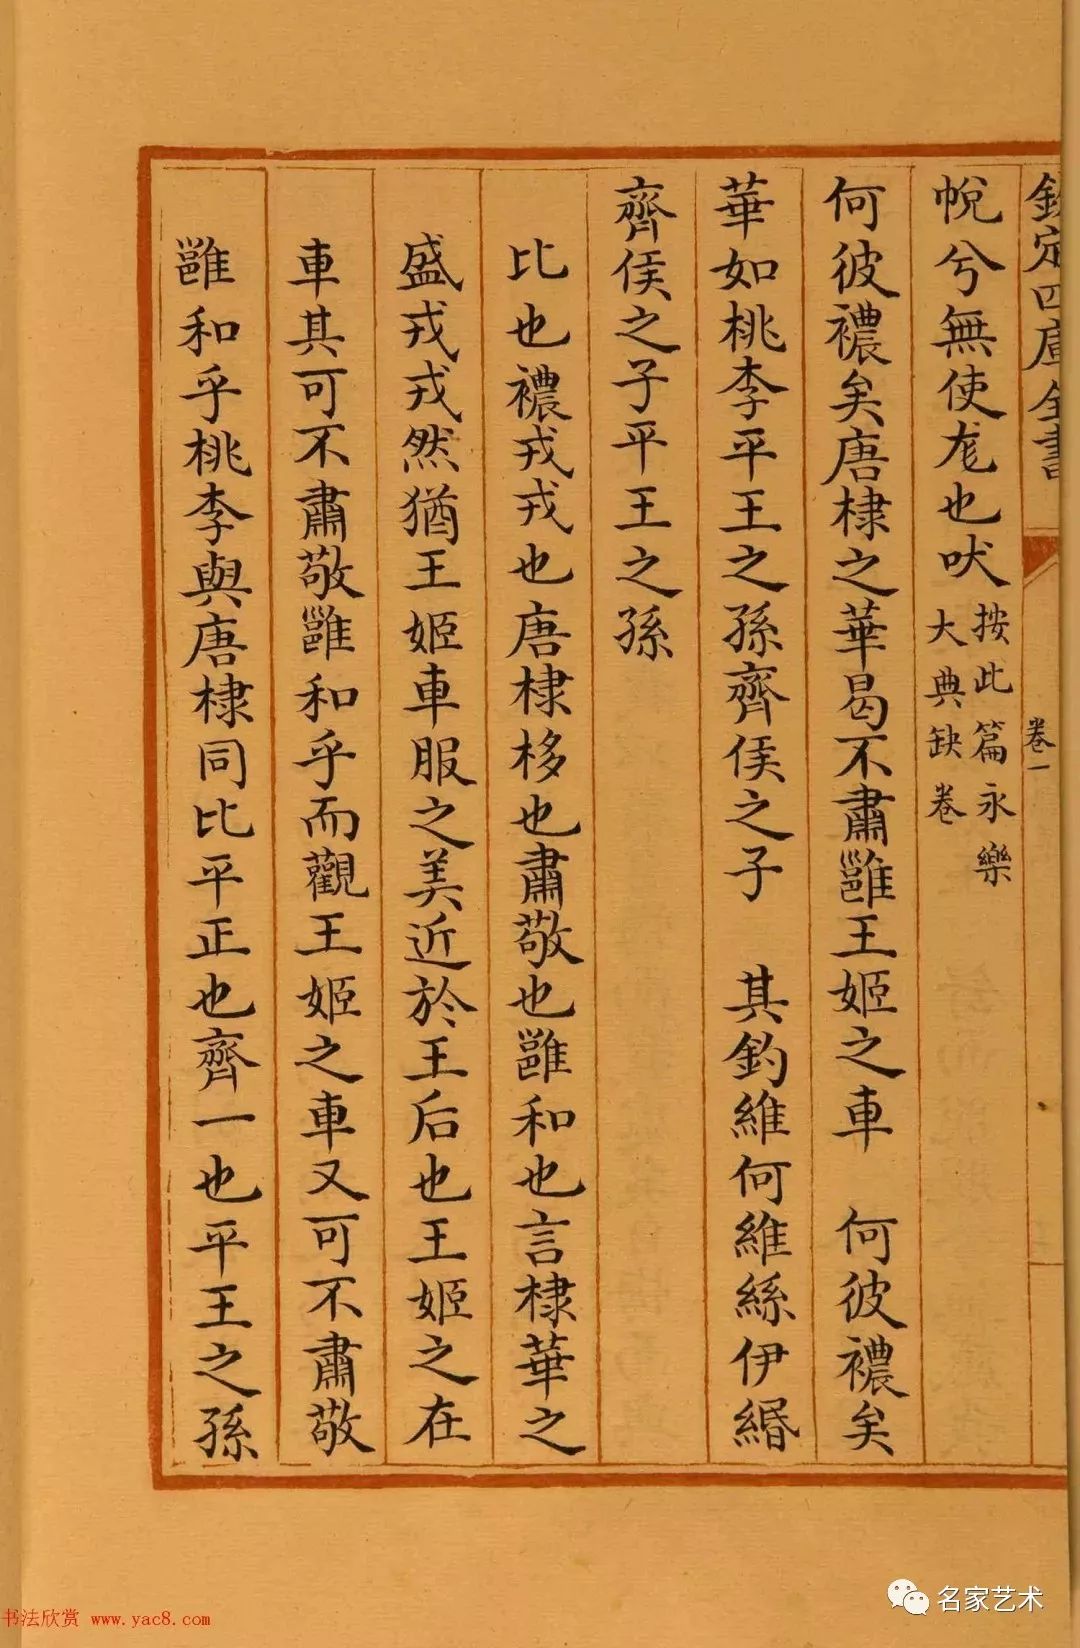 欽定四庫全書
卷一
帨兮無使尨也吠
按此篇永樂
大典缺卷
何彼襛矣唐棣之華曷不肅雝王姬之車　何彼襛矣
華如桃李平王之孫齊侯之子　其釣維何維絲伊緡
齊侯之子平王之孫
比也襛戎戎也唐棣栘也肅敬也雝和也言棣華之
盛戎戎然猶王姬車服之美近於王后也王姬之在
車其可不肅敬雝和乎而觀王姬之車又可不肅敬
雝和乎桃李與唐棣同比平正也齊一也平王之孫
名家艺术
书法欣赏 www.yac8.com